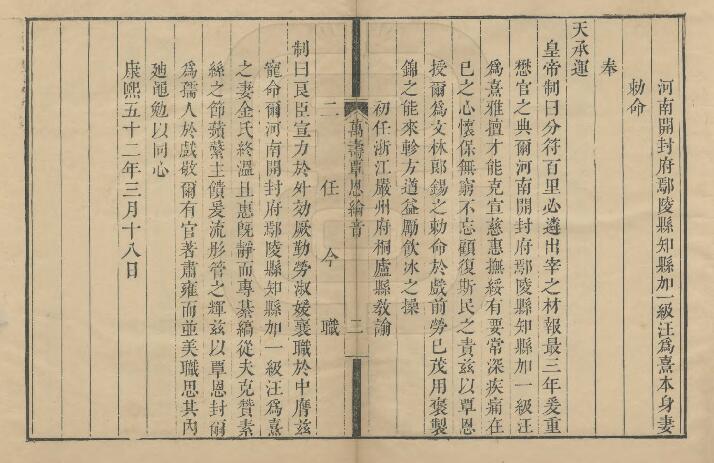 河南開封府鄢陵縣知縣加一級汪爲熹本身妻
勅命
奉
天承運
皇帝制曰分符百里必遴出宰之材報最三年爰重
懋官之典爾河南開封府鄢陵縣知縣加一級汪
爲熹雅擅才能克宣慈惠撫綏有要常深疾痛在
已之心懷保無窮不忘顧復斯民之責茲以覃恩
授爾爲文林郎錫之勅命於戲前勞已茂用褒製
錦之能來軫方遒益勵飲冰之操
初任浙江嚴州府桐廬縣敎諭
萬壽覃恩綸音 二
二任今職
制曰良臣宣力於外効厥勤勞淑媛襄職於中膺茲
寵命爾河南開封府鄢陵縣知縣加一級汪爲熹
之妻金氏終溫且惠旣靜而專綦縞從夫克贊素
絲之節蘋蘩主饋爰流彤管之輝茲以覃恩封爾
爲孺人於戲敬爾有官著肅雍而並美職思其內
廸黽勉以同心
康熙五十二年三月十八日